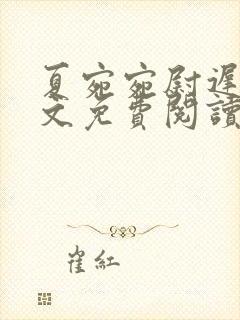 夏宛宛尉遲
文免費閱讀
崔紅